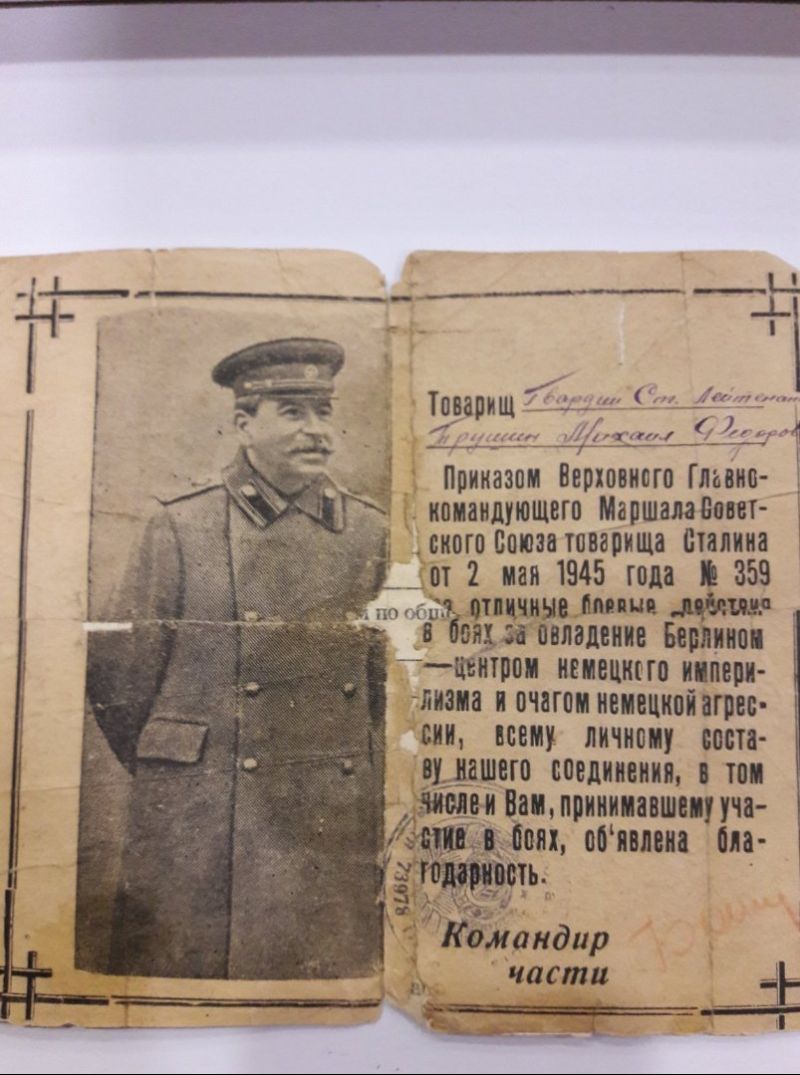 Товарищ Гвардии Ст. Лейтенант
Трушин Михаил Федоров
Приказом Верховного Главно-
командующего Маршала Совет-
ского Союза товарища Сталина
от 2 мая 1945 года № 359
за отличные боевые действия
м по общ
в боях за овладение Берлином
—центром немецкого импери-
лизма и очагом немецкой агрес-
сии, всему личному соста-
ву нашего соединения, в том
числе и Вам, принимавшему уча-
стие в боях, об'явлена бла-
годарность.
73978
Командир
части